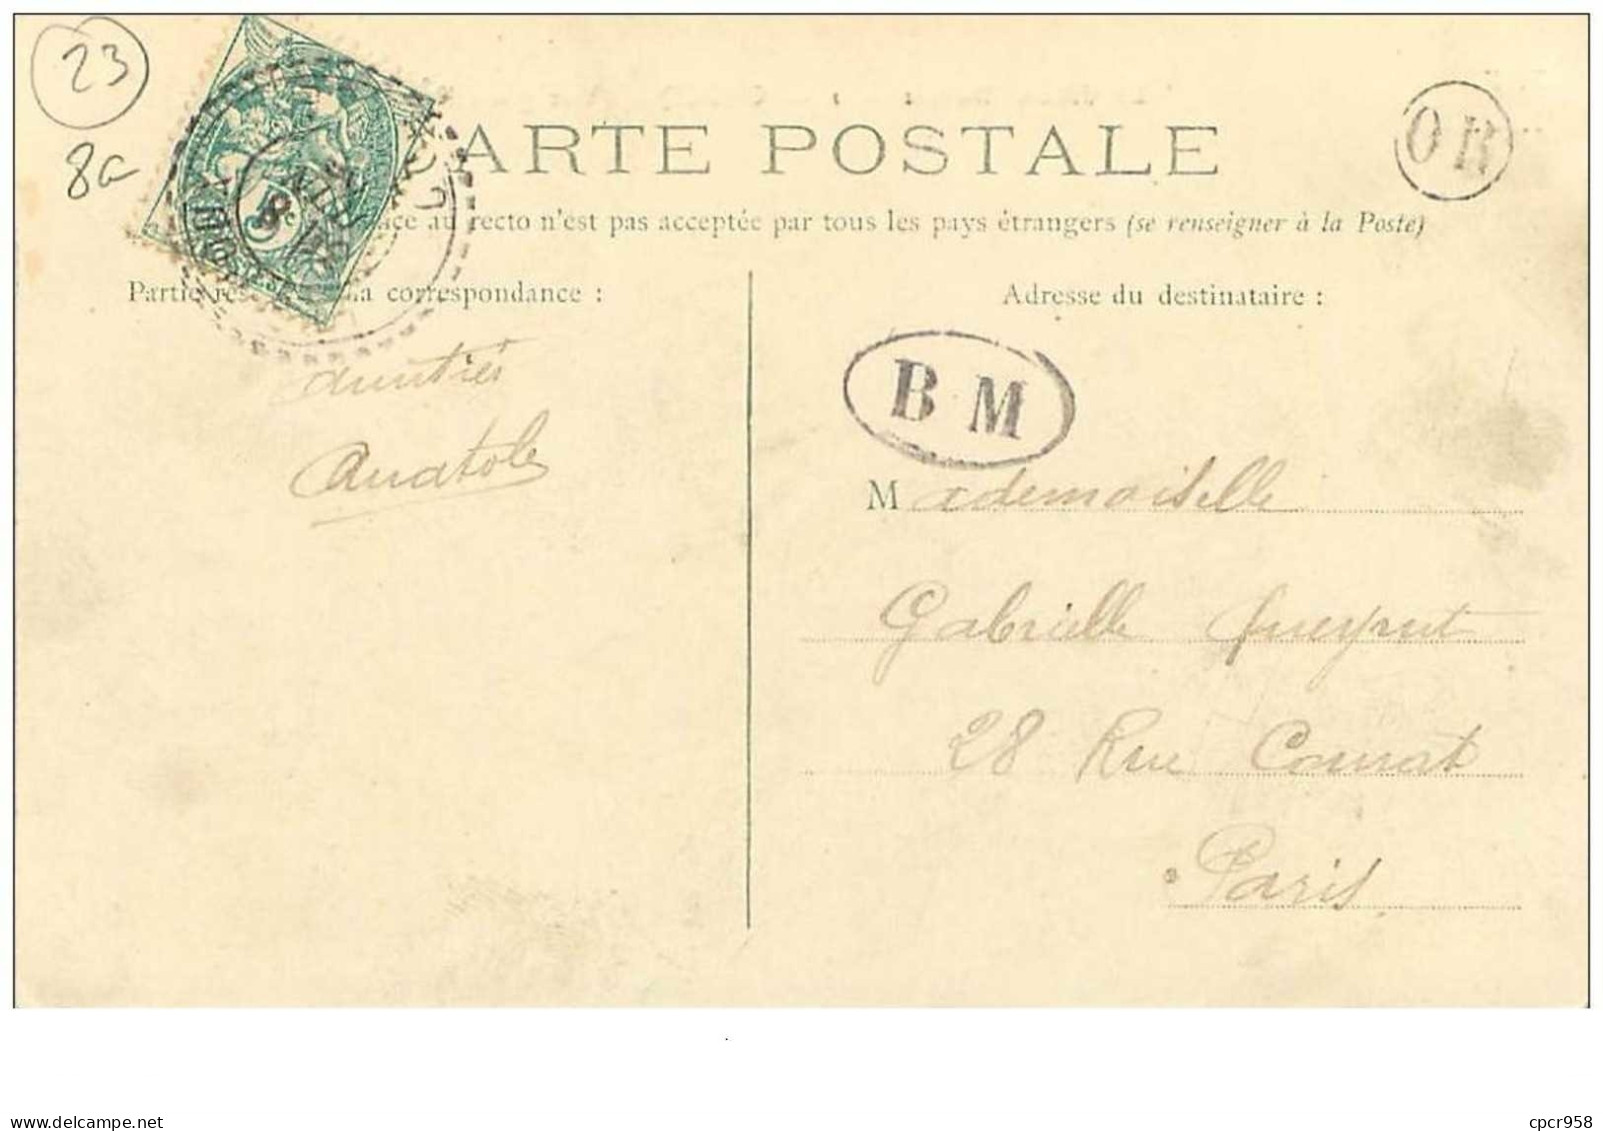 23
8a
CARTE POSTALE
O R
au recto n'est pas acceptée par tous les pays étrangers (se renseigner à la Poste)
5
Partie la correspondance :
Adresse du destinataire :
B M
Anatole
Mademoiselle
Gabrielle
28 Rue
Paris
www.delcampe.net
cpcr958